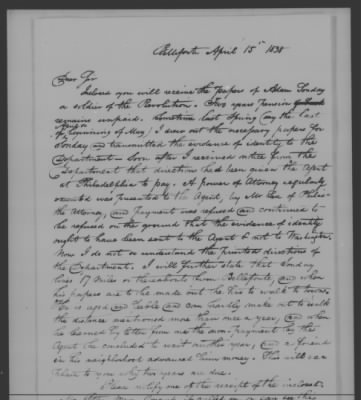 Bellefonte April 15th 1838
Dear Sir
Inclosed you will receive the papers of Adam
a soldier of the Revolution. Two years Pension
remains unpaid. Sometime last Spring (say the last
of April or beginning of May) I drew out the necessary papers for
and transmitted the evidence of identity to the
Department – Soon after I received notice from the
Department that directions had been given the Agent
at Philadelphia to pay. A power of Attorney regularly
executed was presented to the Agent, by Mr. of
the Attorney, and payment was refused and continued to
be refused on the ground that the evidence of identity
ought to have been sent to the Agent & not to Washington.
Now I do not so understand the printed directions of
the Department. I will further state that
lives 17 miles or thereabouts from Bellefonte, and when
his papers are to be made out he has to walk to town.
He is aged and feeble and can hardly make out to walk
the distance mentioned more than once a year, and when
he learned by letter from me the non-payment by the
Agent he concluded to wait another year, and a friend
in his neighborhood advanced him money. This will
to you why two years are due.
Please notify me of the receipt of the inclosed